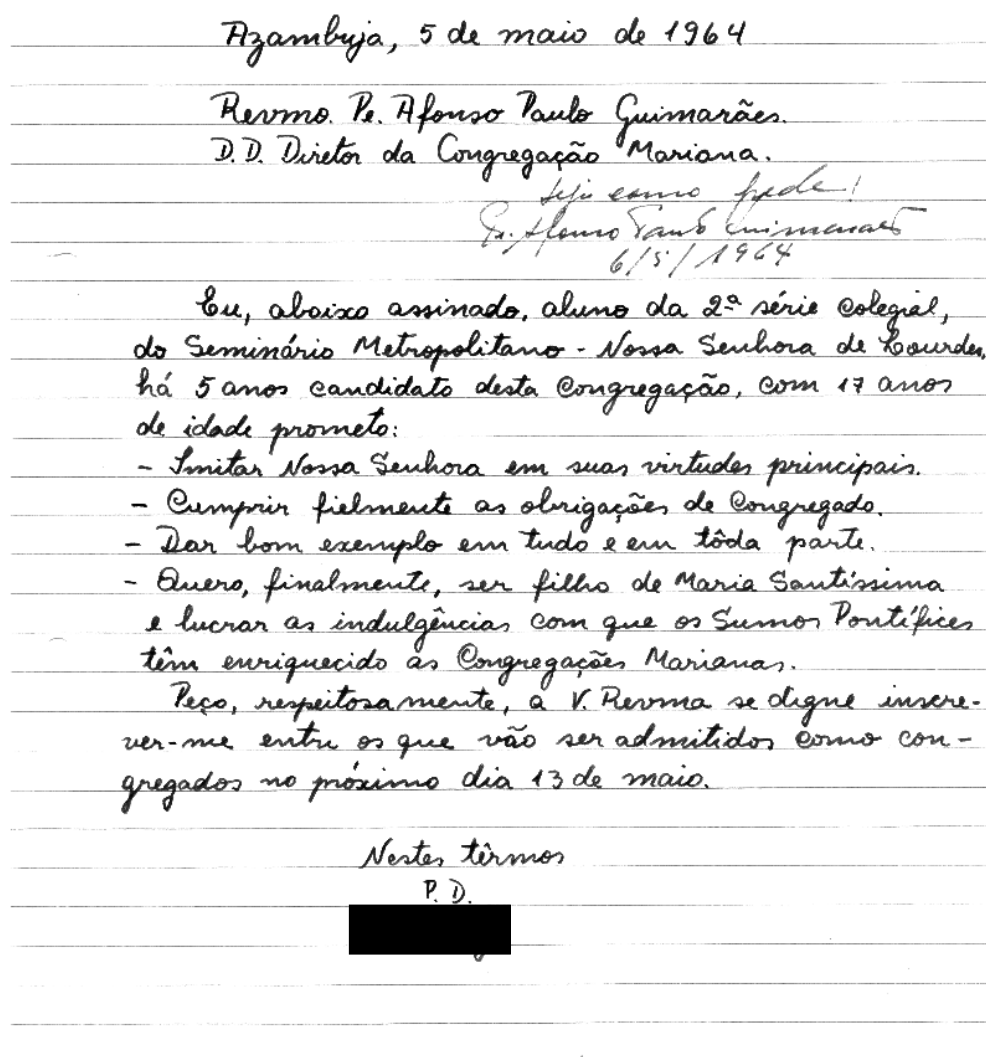 Azambuja, 5 de maio de 1964
Revmo. Pe. Afonso Paulo Guimarães.
D.D. Diretor da Congregação Mariana.
Seja como pede!
Pe. Afonso Paulo Guimarães
6/5/1964
Eu, abaixo assinado, aluno da 2ª série colegial,
do Seminário Metropolitano - Nossa Senhora de Lourdes,
há 5 anos candidato desta Congregação, com 17 anos
de idade prometo:
- Imitar Nossa Senhora em suas virtudes principais.
- Cumprir fielmente as obrigações de Congregado.
- Dar bom exemplo em tudo e em tôda parte.
- Quero, finalmente, ser filho de Maria Santíssima
e lucrar as indulgências com que os Sumos Pontífices
têm enriquecido as Congregações Marianas.
Peço, respeitosamente, a V. Revma se digne inscre-
ver-me entre os que vão ser admitidos como con-
gregados no próximo dia 13 de maio.
Nestes têrmos
P. D.